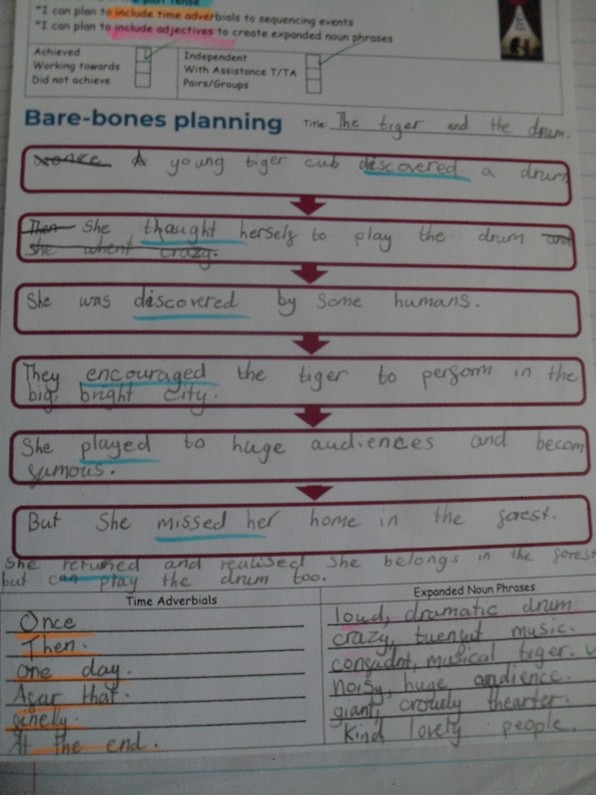 past tense
"I can plan to include time adverbials to sequencing events
"I can plan to include adjectives to create expanded noun phrases
Achieved
Working towards
Did not achieve
Independent
With Assistance T/TA
Pairs/Groups
Bare-bones planning
Title: The tiger and the drum.
once A young tiger cub discovered a drum
Then She thaught herself to play the drum and
she whent crazy.
She was discovered by some humans.
They encouraged the tiger to perform in the
big, bright city.
She played to huge audiences and becom
famous.
But She missed her home in the forest.
She returned and realised she belongs in the forest
but can play the drum too.
Time Adverbials
Once
Then.
One day.
Agar that.
finelly.
At the end.
Expanded Noun Phrases
loud, dramatic drum.
crazy, music.
musical tiger.
noisy, huge audience.
giant, crowdy thearter.
Kind lovely people.